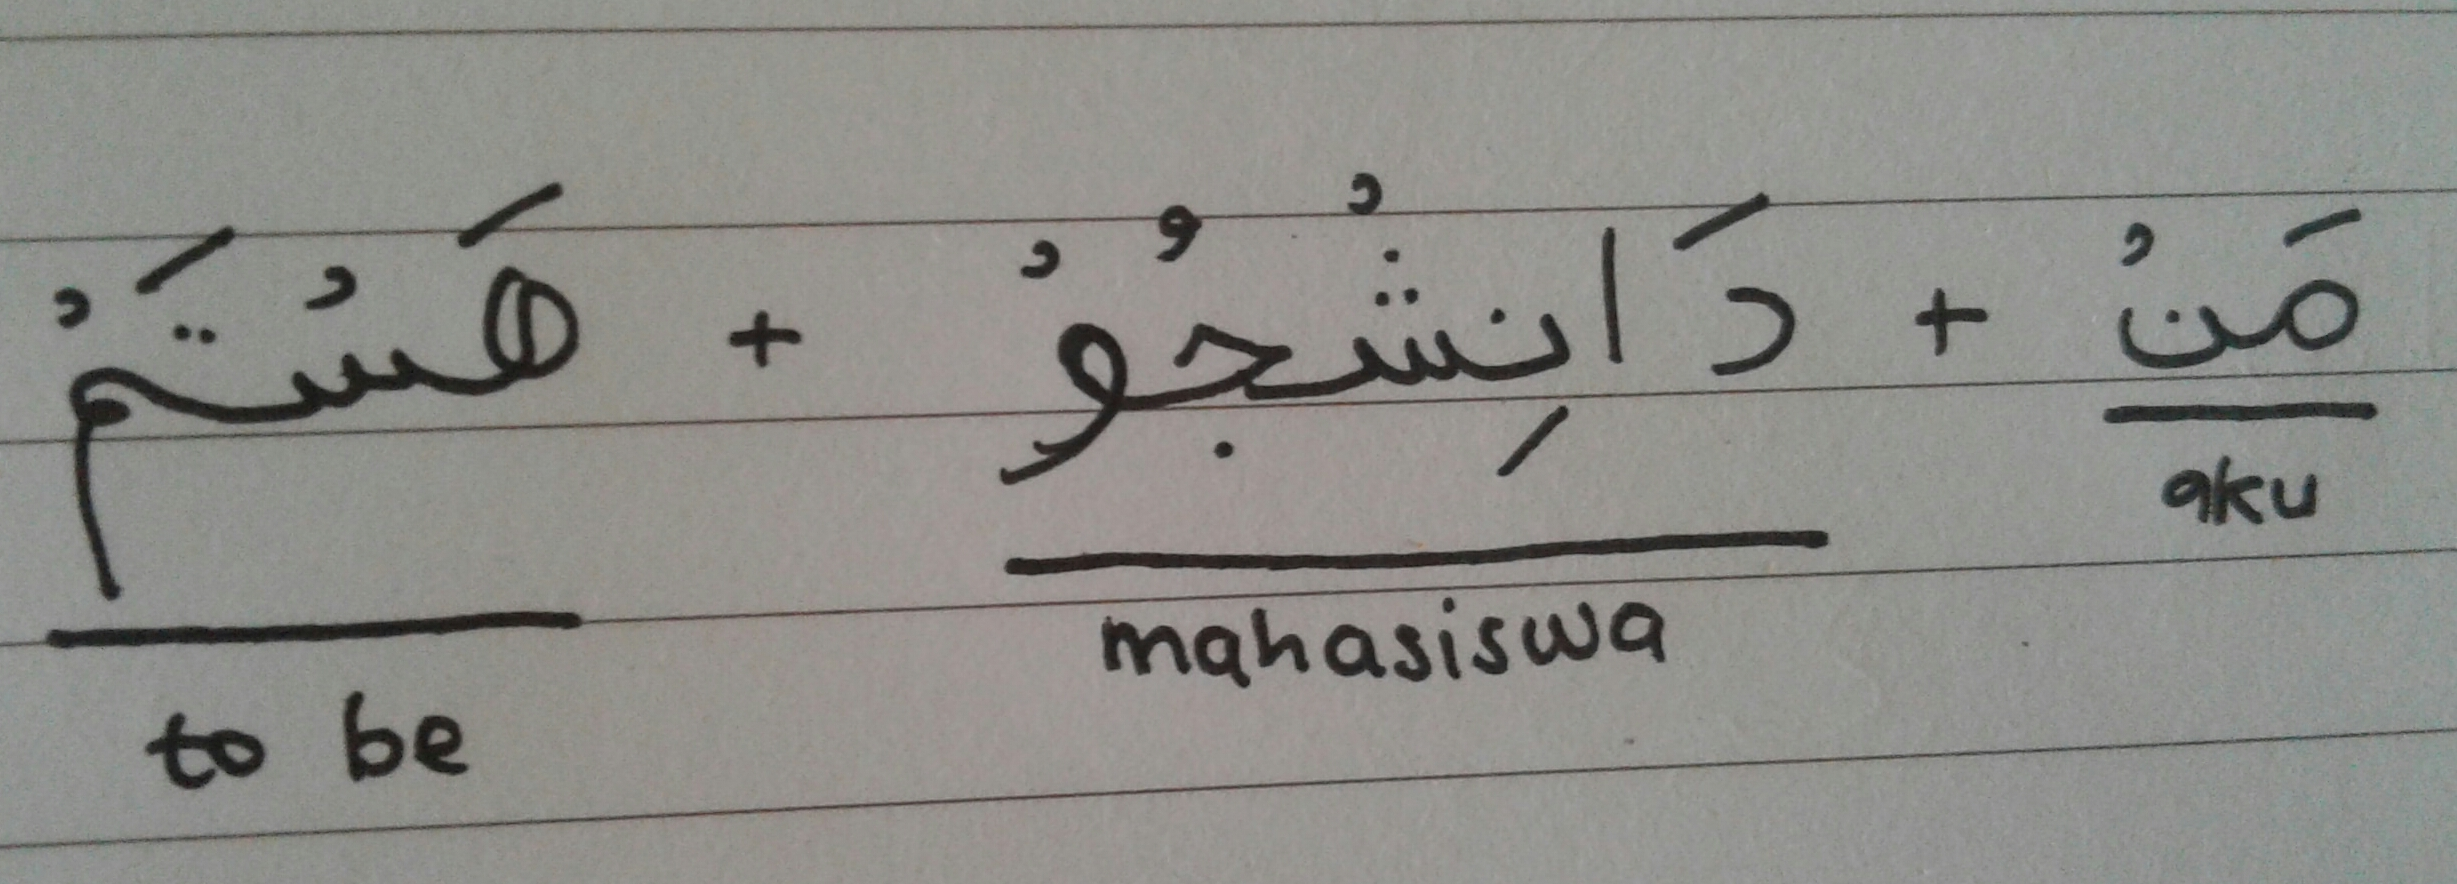 مَنْ + دَانِشْجُوْ + هَسْتَمْ
aku mahasiswa to be